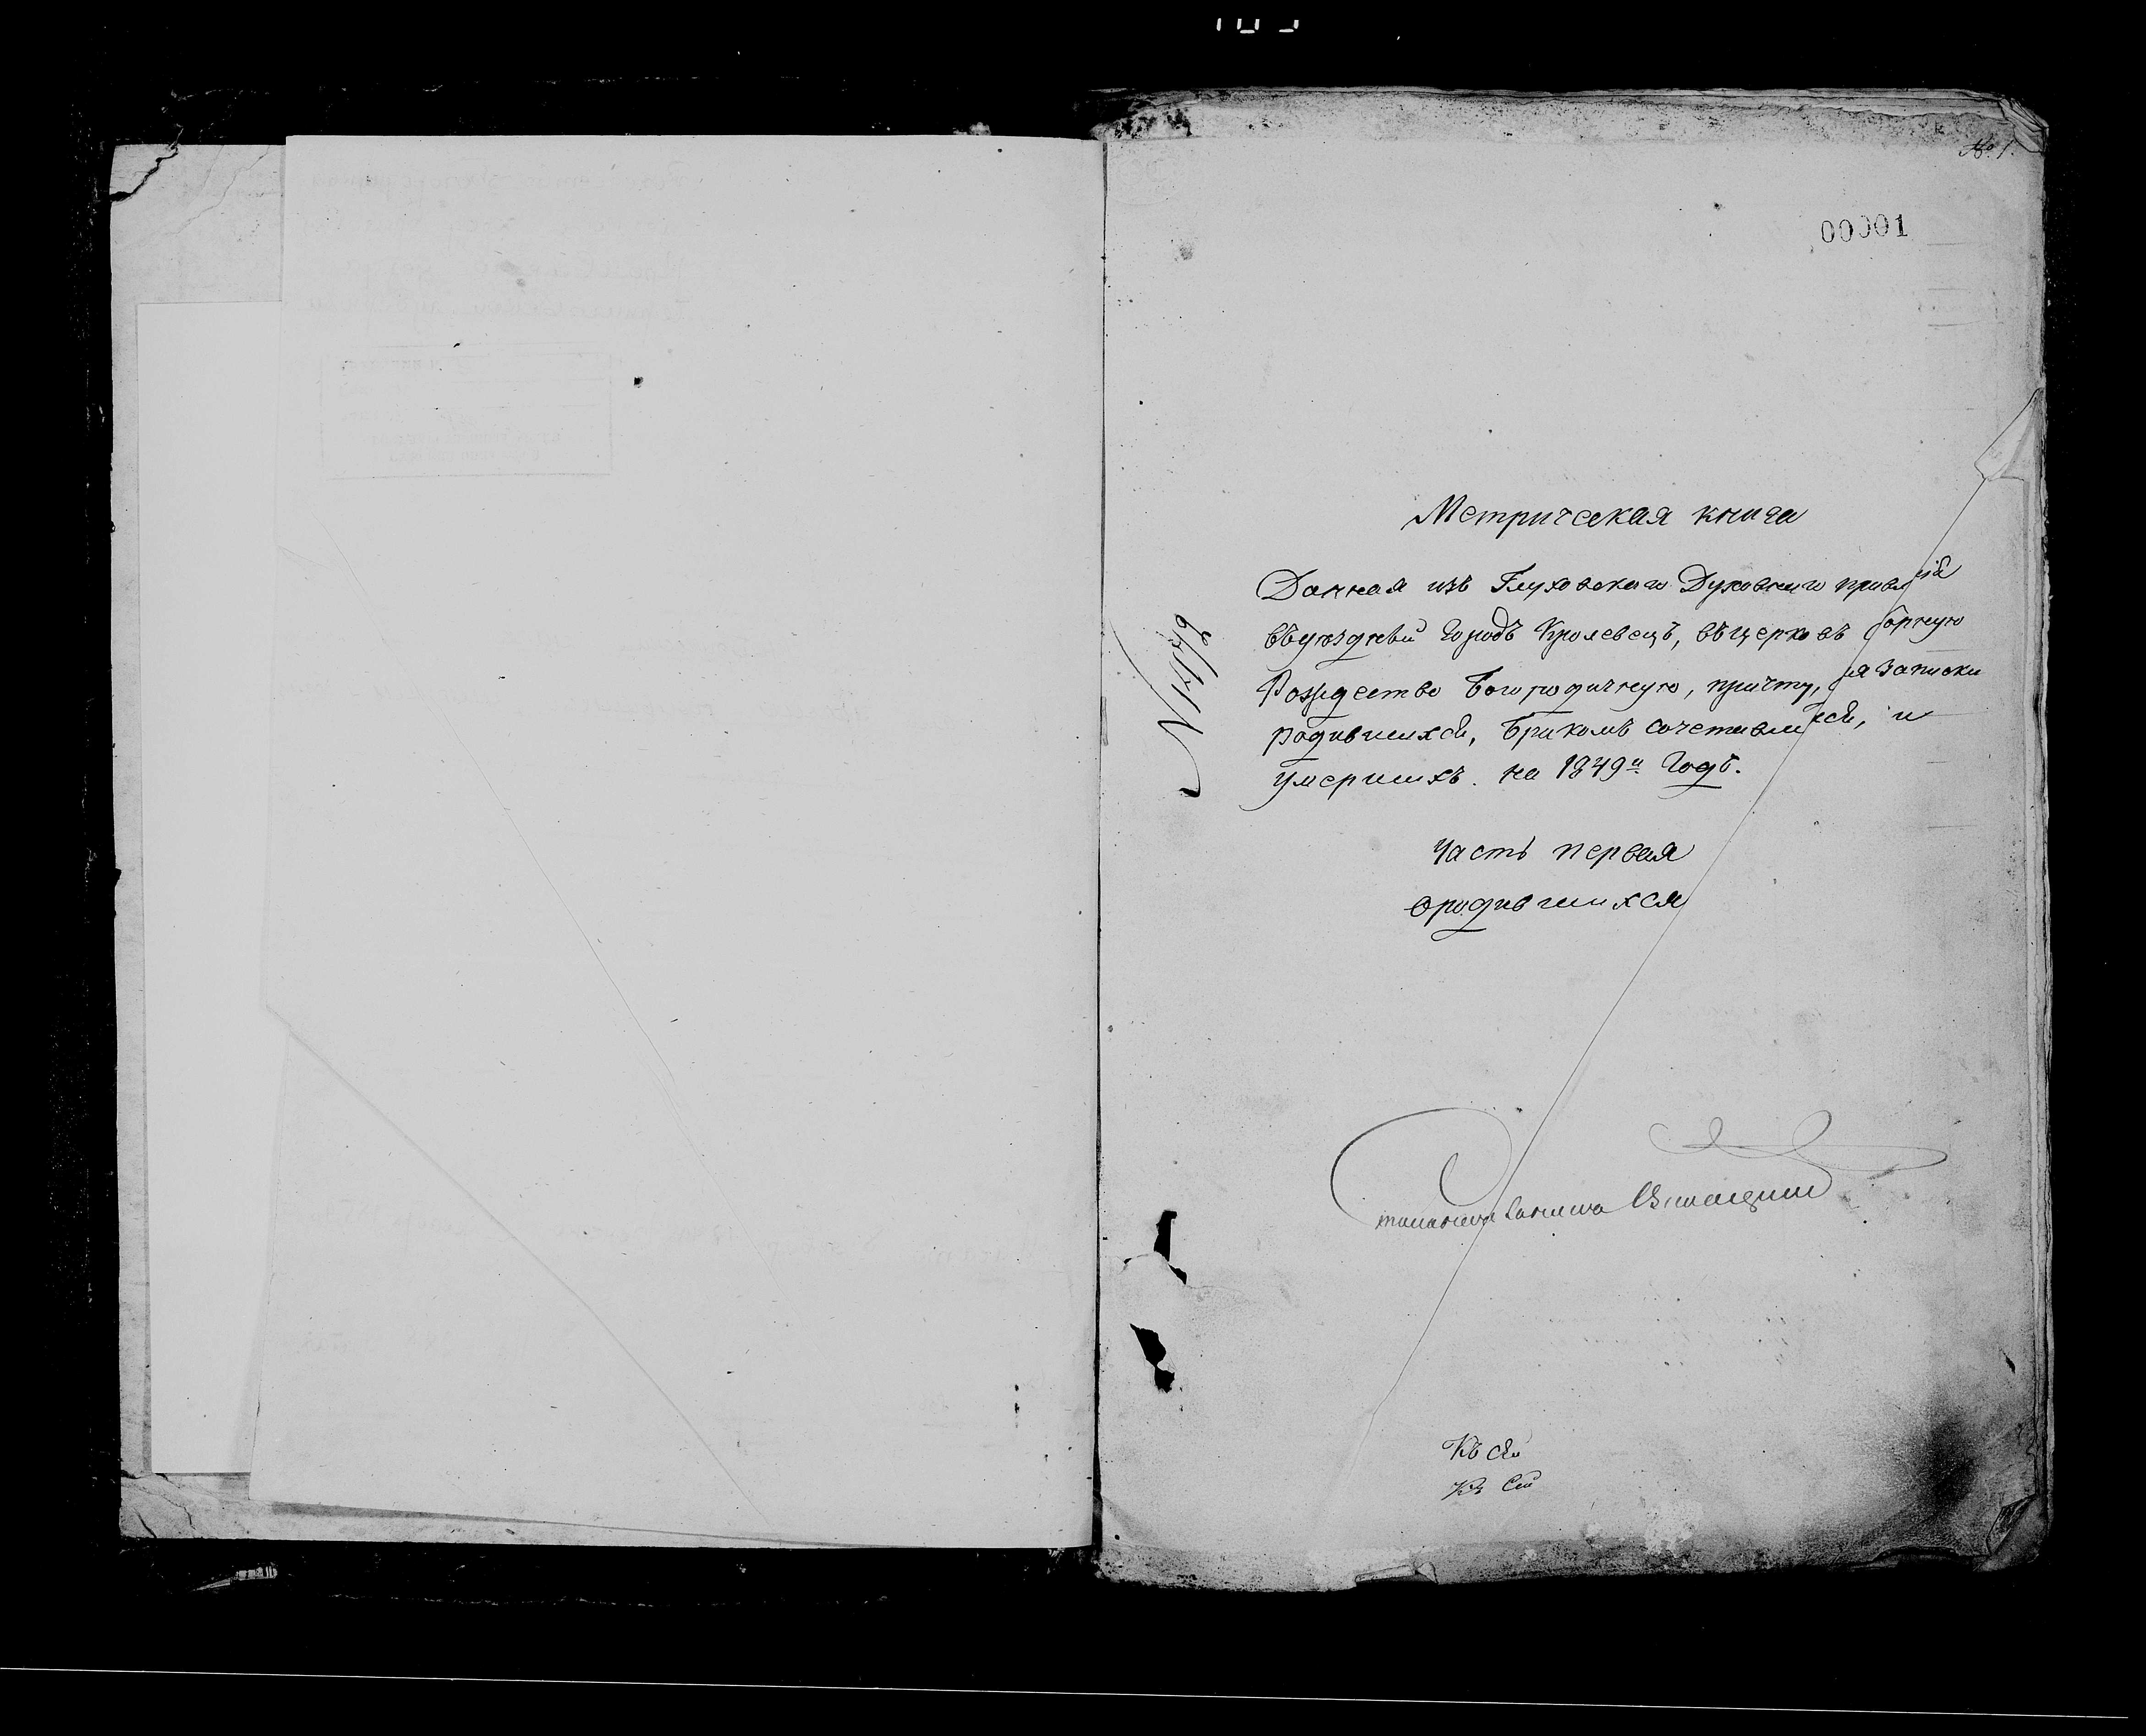 № 1.
00001
Метрическая книга
Данная изъ Глуховскаго Духовнаго правлія
въуѣздный Городъ Кролевецъ, въцерковъ борную
Рождество Богородичную, причту, для записки
родившихся, бракомъ сочетавшихся, и
умершихъ. на 1849й Годъ.
Часть первая
ородившихся